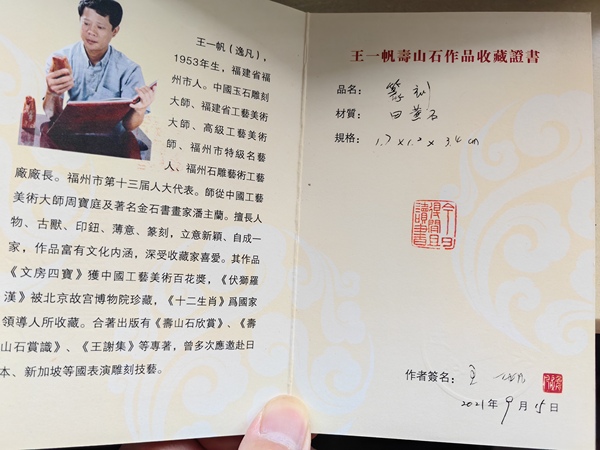 王一帆（逸凡），
1953年生，福建省福
州市人。中國玉石雕刻
大師、福建省工藝美術
大師、高級工藝美術
師、福州市特級名藝
人、福州石雕藝術工藝
廠廠長。福州市第十三届人大代表。師從中國工藝
美術大師周寶庭及著名金石書畫家潘主蘭。擅長人
物、古獸、印鈕、薄意、篆刻，立意新穎、自成一
家，作品富有文化内涵，深受收藏家喜爱。其作品
《文房四寶》獲中國工藝美術百花獎，《伏獅羅
漢》被北京故宫博物院珍藏，《十二生肖》爲國家
領導人所收藏。合著出版有《壽山石欣賞》、《壽
山石賞識》、《王謝集》等專著，曾多次應邀赴日
本、新加坡等國表演雕刻技藝。
王一帆壽山石作品收藏證書
品名：篆刻
材質：田黃石
規格：1.7×1.2×3.4cm
今日
得閒且
讀書
作者簽名：王一帆
2021年9月15日